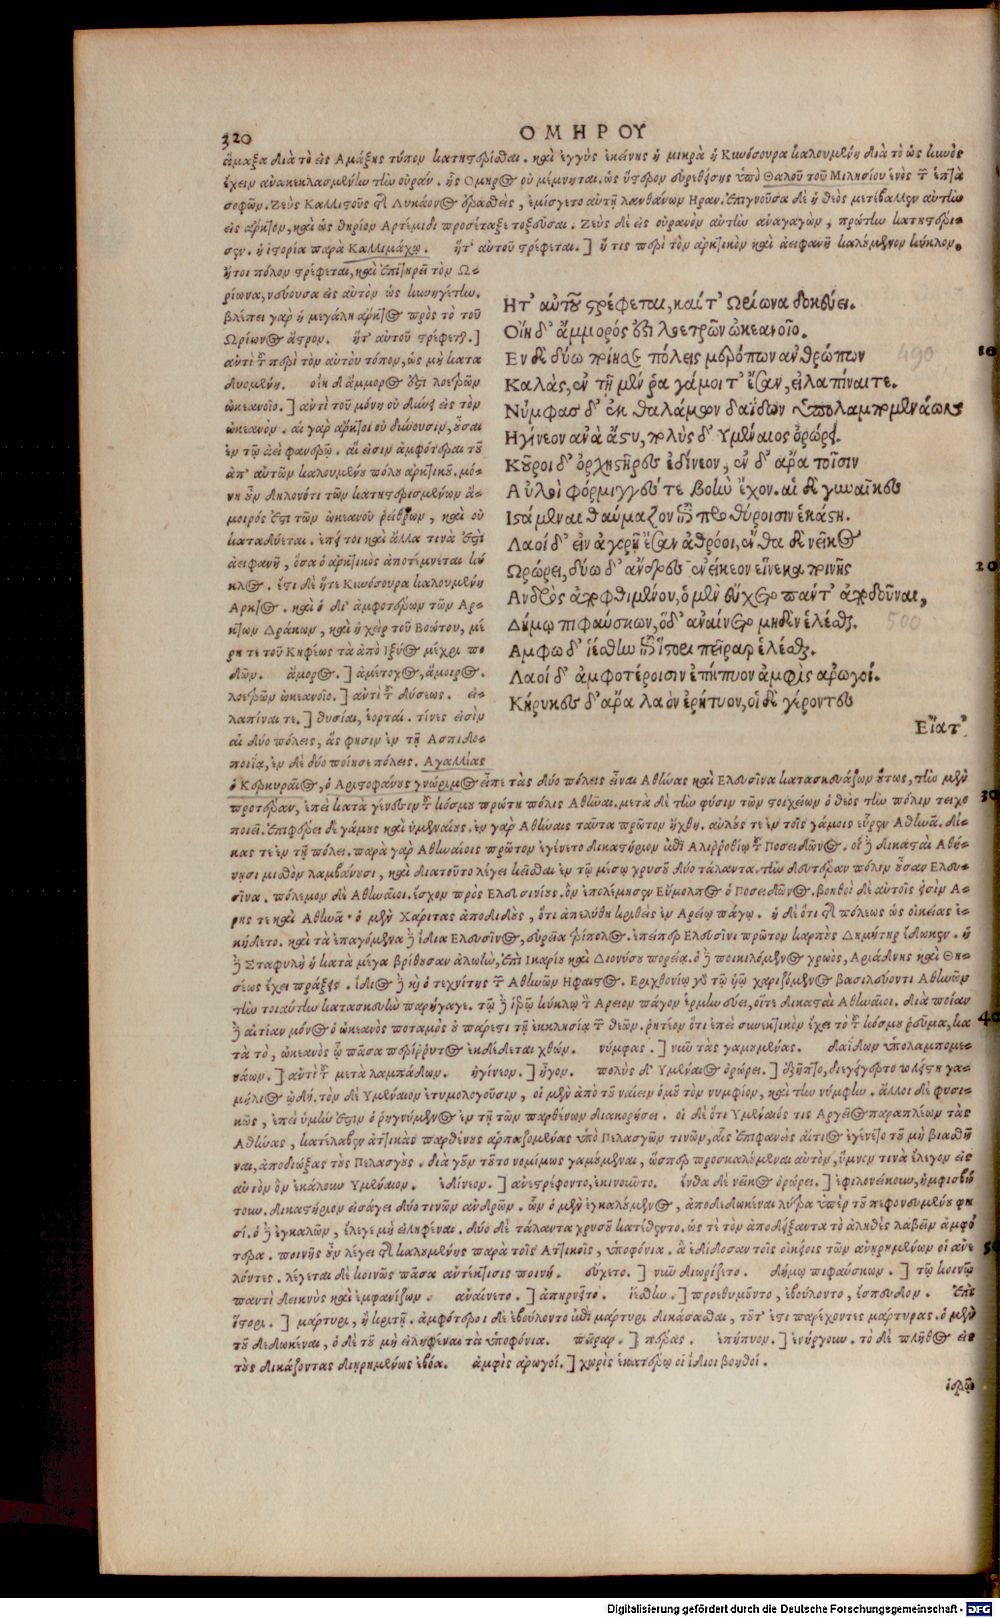 320
ΟΜΗΡΟΥ
ἅμαξα διὰ τὸ εἰς Ἀμάξης τύπον κατηστερίσθαι. καὶ ἐγγὺς ἐκείνης ἡ μικρὰ ἡ Κυνόσουρα καλουμένη διὰ τὸ ὡς κυνὸς
ἔχειν ἀνακεκλασμένην τὴν οὐράν. ἧς Ὅμηρος οὐ μέμνηται. ὡς ὕστερον εὑρεθείσης ὑπὸ Θαλοῦ τοῦ Μιλησίου ἑνὸς τῶν ἑπτὰ
σοφῶν. Ζεὺς Καλλιστοῦς τῆς Λυκάονος ἐρασθεὶς, ἐμίσγετο αὐτῇ λανθάνων Ηραν. ἐπιγνοῦσα δὲ ἡ θεὸς μετέβαλεν αὐτὴν
εἰς ἄρκτον, καὶ ὡς θηρίον Αρτέμιδι προσέταξε τοξεῦσαι. Ζεὺς δὲ εἰς οὐρανὸν αὐτὴν ἀναγαγὼν, πρώτην κατηστέρι-
σεν. ἡ ἱστορία παρὰ Καλλιμάχῳ. ἥτ' αὐτοῦ στρέφεται.] ἥ τις περὶ τὸν ἀρκτικὸν καὶ ἀειφανῆ καλούμενον κύκλον,
ἤτοι πόλον στρέφεται, καὶ ἐπιτηρεῖ τὸν Ω-
ρίωνα, νεύουσα εἰς αὐτὸν ὡς κυνηγέτην.
βλέπει γὰρ ἡ μεγάλη ἄρκτος πρὸς τὸ τοῦ
Ωρίωνος ἄστρον. ἥτ' αὐτοῦ στρέφεται.]
ἀντὶ τοῦ περὶ τὸν αὐτὸν τόπον, ὡς μὴ κατα
δυομένη. οἴη δ' ἄμμορος ἐστι λοετρῶν
ὠκεανοῖο.] ἀντὶ τοῦ μόνη οὐ δύνει εἰς τὸν
ὠκεανόν. αἱ γὰρ ἄρκτοι οὐ δύνουσιν, οὖσαι
ἐν τῷ ἀεὶ φανερῷ. αἵ εἰσιν ἀμφότεραι τοῦ
ἀπ' αὐτῶν καλουμένου πόλου ἀρκτικοῦ. μό-
νη οὖν δηλονότι τῶν κατηστερισμένων ἄ-
μοιρός ἐστι τῶν ὠκεανοῦ ῥείθρων, καὶ οὐ
καταδύεται. ἐπεί τοι καὶ ἄλλα τινὰ ἐστὶ
ἀειφανῆ, ὅσα ὁ ἀρκτικὸς ἀποτέμνεται κύ
κλος. ἔστι δὲ ἥτε Κυνόσουρα καλουμένη
Αρκτος. καὶ ὁ δι' ἀμφοτέρων τῶν Αρ-
κτων Δράκων, καὶ ἡ χεὶρ τοῦ Βοώτου, μέ
ρη τε τοῦ Κηφέως τὰ ἀπὸ ἰξύος μέχρι πο
δῶν. ἄμορος.] ἀμέτοχος, ἄμοιρος.
λοετρῶν ὠκεανοῖο.] ἀντὶ τοῦ δύσεως. εἰ-
λαπίναι τε.] θυσίαι, ἑορταί. τίνες εἰσὶν
αἱ δύο πόλεις, ἅς φησιν ἐν τῇ Ασπιδο-
ποιΐᾳ, ἐν δὲ δύο ποίησε πόλεις. Αγαλλίας
Ητ' αὐτοῦ στρέφεται, καί τ' Ωρίωνα δοκεύει.
Οἴη δ' ἄμμορός ἐστι λοετρῶν ὠκεανοῖο.
Εν δὲ δύω ποίησε πόλεις μερόπων ἀνθρώπων 490
Καλὰς, ἐν τῇ μέν ῥα γάμοι τ' ἔσαν, εἰλαπίναι τε.
Νύμφας δ' ἐκ θαλάμων δαΐδων ὑπολαμπομενάων
Ηγίνεον ἀνὰ ἄστυ, πολὺς δ' Υμέναιος ὀρώρει.
Κοῦροι δ' ὀρχηστῆρες ἐδίνεον, ἐν δ' ἄρα τοῖσιν
Αὐλοὶ φόρμιγγές τε βοὴν ἔχον. αἱ δὲ γυναῖκες
Ιστάμεναι θαύμαζον ἐπὶ προθύροισιν ἑκάστη.
Λαοὶ δ' εἰν ἀγορῇ ἔσαν ἀθρόοι, ἔνθα δὲ νεῖκος
Ωρώρει, δύω δ' ἄνδρες ἐνείκεον εἵνεκα ποινῆς
Ανδρὸς ἀποφθιμένου, ὁ μὲν εὔχετο πάντ' ἀποδοῦναι,
Δήμῳ πιφαύσκων, ὁ δ' ἀναίνετο μηδὲν ἑλέσθαι. 500
Αμφω δ' ἱέσθην ἐπὶ ἵστορι πεῖραρ ἑλέσθαι.
Λαοὶ δ' ἀμφοτέροισιν ἐπήπυον ἀμφὶς ἀρωγοί.
Κήρυκες δ' ἄρα λαὸν ἐρήτυον, οἱ δὲ γέροντες
Εἵατ'
10
20
30
40
ὁ Κερκυραῖος, ὁ Αριστοφάνους γνώριμος εἶπε τὰς δύο πόλεις εἶναι Αθήνας καὶ Ελευσῖνα κατασκευάζων οὕτως, τὴν μὲν
προτέραν, ἐπεὶ κατὰ γένεσιν τοῦ κόσμου πρώτη πόλις Αθῆναι. μετὰ δὲ τὴν φύσιν τῶν στοιχείων ὁ θεὸς τὴν πόλιν τειχο
ποιεῖ. ἐπιφέρει δὲ γάμους καὶ ὑμεναίους. ἐν γὰρ Αθήναις ταῦτα πρῶτον ἤχθη. αὐλούς τε ἐν τοῖς γάμοις εὗρεν Αθηνᾶ. δί-
κας τε ἐν τῇ πόλει. παρὰ γὰρ Αθηναίοις πρῶτον ἐγένετο δικαστήριον ἐπὶ Αλιρροθίῳ τοῦ Ποσειδῶνος. οἱ δὲ δικασταὶ Αθή-
νησι μισθὸν λαμβάνουσι, καὶ διατοῦτο λέγει κεῖσθαι ἐν τῷ μέσῳ χρυσοῦ δύο τάλαντα. τὴν δευτέραν πόλιν οὖσαν Ελευ-
σῖνα. πόλεμον δὲ Αθηναῖοι ἔσχον πρὸς Ελευσινίους. ὃν ἐπολέμησεν Εὔμολπος ὁ Ποσειδῶνος. βοηθοὶ δὲ αὐτοῖς εἰσὶν Α-
ρης τε καὶ Αθηνᾶ. ὁ μὲν Χάριτας ἀποδιδοὺς, ὅτι ἀπελύθη κριθεὶς ἐν Αρείῳ πάγῳ. ἡ δὲ ὅτι τῆς πόλεως ὡς οἰκείας ἐ-
κήδετο. καὶ τὰ ἐπαγόμενα δὲ ἴδια Ελευσῖνος, εὐρεῖα τρίπολος. ἐπείπερ Ελευσῖνι πρῶτον καρποὺς Δημήτηρ ἔδωκεν. ἡ
δὲ Σταφυλὴ ἡ κατὰ μέγα βρίθουσαν ἀλωὴν, ἐπὶ Ικαρίου καὶ Διονύσου πορεία. ὁ δὲ ποικιλόμενος χορὸς, Αριάδνης καὶ Θη-
σέως ἔχει πράξεις. ἴδιος δὲ καὶ ὁ τεχνίτης τῶν Αθηνῶν Ηφαιστος. Εριχθονίῳ γοῦν τῷ υἱῷ χαριζόμενος βασιλεύοντι Αθηνῶν
τὴν τοιαύτην κατασκευὴν παρήγαγε. τῷ δὲ ἱερῷ κύκλῳ τὸν Αρειον πάγον ἑρμηνεύει, οἵτε δικασταὶ Αθηναῖοι. διὰ ποίαν
δὲ αἰτίαν μόνος ὁ ὠκεανὸς ποταμὸς οὐ πάρεστι τῇ ἐκκλησίᾳ τῶν θεῶν. ῥητέον ὅτι ἐπεὶ συνεκτικὸν ἔχει τὸ τοῦ κόσμου ῥεῦμα, κα
τὰ τὸ, ὠκεανὸς ᾧ πᾶσα περίρρυτος ἐνδέδεται χθών. νύμφας.] νῦν τὰς γαμουμένας. δαΐδων ὑπολαμπομε-
νάων.] ἀντὶ τοῦ μετὰ λαμπάδων. ἠγίνεον.] ἦγον. πολὺς δ' Υμέναιος ὀρώρει.] διεγήγερτο
μέλιος ᾠδή. τὸν δὲ Υμέναιον ἐτυμολογοῦσιν, οἱ μὲν ἀπὸ τοῦ ναίειν ὁμοῦ τὸν νυμφίον, καὶ τὴν νύμφην. ἄλλοι δὲ φυσι-
κῶς, ἐπεὶ ὑμήν ἐστιν ὁ ῥηγνύμενος ἐν τῇ τῶν παρθένων διακορήσει. οἱ δὲ ὅτι Υμέναιός τις Αργεῖος παραπλέων τὰς
Αθήνας, κατέλαβεν ἀττικὰς παρθένους ἁρπαζομένας ὑπὸ Πελασγῶν τινῶν, αἷς ἐπιφανεὶς αἴτιος ἐγένετο τοῦ μὴ βιασθῆ
ναι, ἀποδιώξας τοὺς Πελασγούς. διὰ γοῦν τοῦτο νομίμως γαμούμεναι, ὥσπερ προσκαλούμεναι αὐτὸν, ὕμνον τινὰ ἔλεγον εἰς
αὐτὸν ὃν ἐκάλουν Υμέναιον. ἐδίνεον.] ἀνεστρέφοντο, ἐκινοῦντο. ἔνθα δὲ νεῖκος ὀρώρει.] ἐφιλονείκουν, ἠμφισβή
τουν. δικαστήριον εἰσάγει δύο τινῶν ἀνδρῶν. ὧν ὁ μὲν ἐγκαλούμενος, ἀποδεδωκέναι λύτρα ὑπὲρ τοῦ πεφονευμένου φη
σί. ὁ δὲ ἐγκαλῶν, ἔλεγε μὴ εἰληφέναι. δύο δὲ τάλαντα χρυσοῦ κατέθεντο. ὥς τε τὸν ἀποδείξαντα τὸ ἀληθὲς λαβεῖν ἀμφό
τερα. ποινῆς οὖν λέγει τῆς καλουμένης παρὰ τοῖς Αττικοῖς, ὑποφόνια. ἃ ἐδίδοσαν τοῖς οἰκείοις τῶν ἀνῃρημένων οἱ ἀνε
λόντες. λέγεται δὲ κοινῶς πᾶσα ἀντέκτισις ποινή. εὔχετο.] νῦν διωρίζετο. δήμῳ πιφαύσκων.] τῷ κοινῷ
παντὶ δεικνὺς καὶ ἐμφανίζων. ἀναίνετο.] ἀπηρνεῖτο. ἱέσθην.] προεθυμοῦντο, ἐβούλοντο, ἔσπευδον. ἐπὶ
ἵστορι.] μάρτυρι, ἢ κριτῇ. ἀμφότεροι δὲ ἐβούλοντο ἐπὶ μάρτυρι δικάσασθαι, τοῦτ' ἔστι παρέχοντες μάρτυρας. ὁ μὲν
τοῦ δεδωκέναι, ὁ δὲ τοῦ μὴ εἰληφέναι τὰ ὑποφόνια. πεῖραρ.] πέρας. ἐπήπυον.] ἐνήργουν. τὸ δὲ πλῆθος εἰς
τοὺς δικάζοντας διῃρημένως ἐβόα. ἀμφὶς ἀρωγοί.] χωρὶς ἑκατέρῳ οἱ ἴδιοι βοηθοί.
ἱερῷ
Digitalisierung gefördert durch die Deutsche Forschungsgemeinschaft - DFG